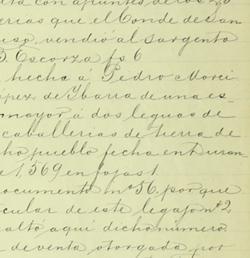 con apuntes de los
erias que el Conde de San
vendió al sargento
Escorza fs 6
hecha á Pedro Morci
opez de Ybarra de una es
mayor á dos leguas de
caballerias de tierra de
cho pueblo fecha en Duran
1569 en fojas 1
ocumento nº 56, por que
cular de este legajo nº 2,
altó aqui dicho número
de venta otorgada por